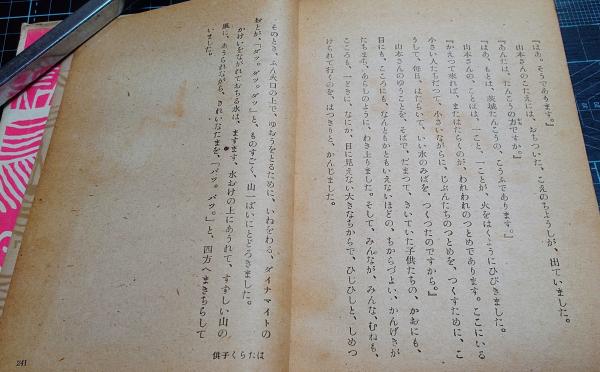 『はあ。そうであります。』
山本さんのこたえには、おちついた、こえのちょうしが、出ていました。
『あんたは、たんこうの方ですか。』
『はあ、もとは、茨城たんこうの、こうふであります。』
山本さんの、ことばは、一こと、一ことが、火をはくようにひびきました。
『かえって来れば、またはたらくのが、われわれのつとめであります。ここにいる
小さい人たちだって、小さいながらに、じぶんたちのつとめを、つくすために、こ
うして、毎日、はたらいて、いい水のみばを、つくったのですから。』
山本さんのゆうことを、そばで、だまって、きいていた子供たちの、かおにも、
目にも、こころにも、なんともかともいえないほどの、ちからづよい、かんげきが
たちまち、あらしのように、わき上りました。そして、みんなが、みんな、むねも、
こころも、一どきに、なにか、目に見えない大きなちからで、ひしひしと、しめつ
けられて行くのを、はっきりと、かんじました。
そのとき、ふん火口の上で、ゆおうをとるために、いわをわる、ダイナマイトの
おとが、「ダツ。ダツ。ダツ」と、ものすごく、山一ぱいにとどろきました。
かけいをながれておちる水は、ますます、水おけの上にあふれて、すずしい山の
風に、あおられながら、きれいなたまを、「パツ。パツ。」と、四方へまきちらして
いました。
供子くらたは
241